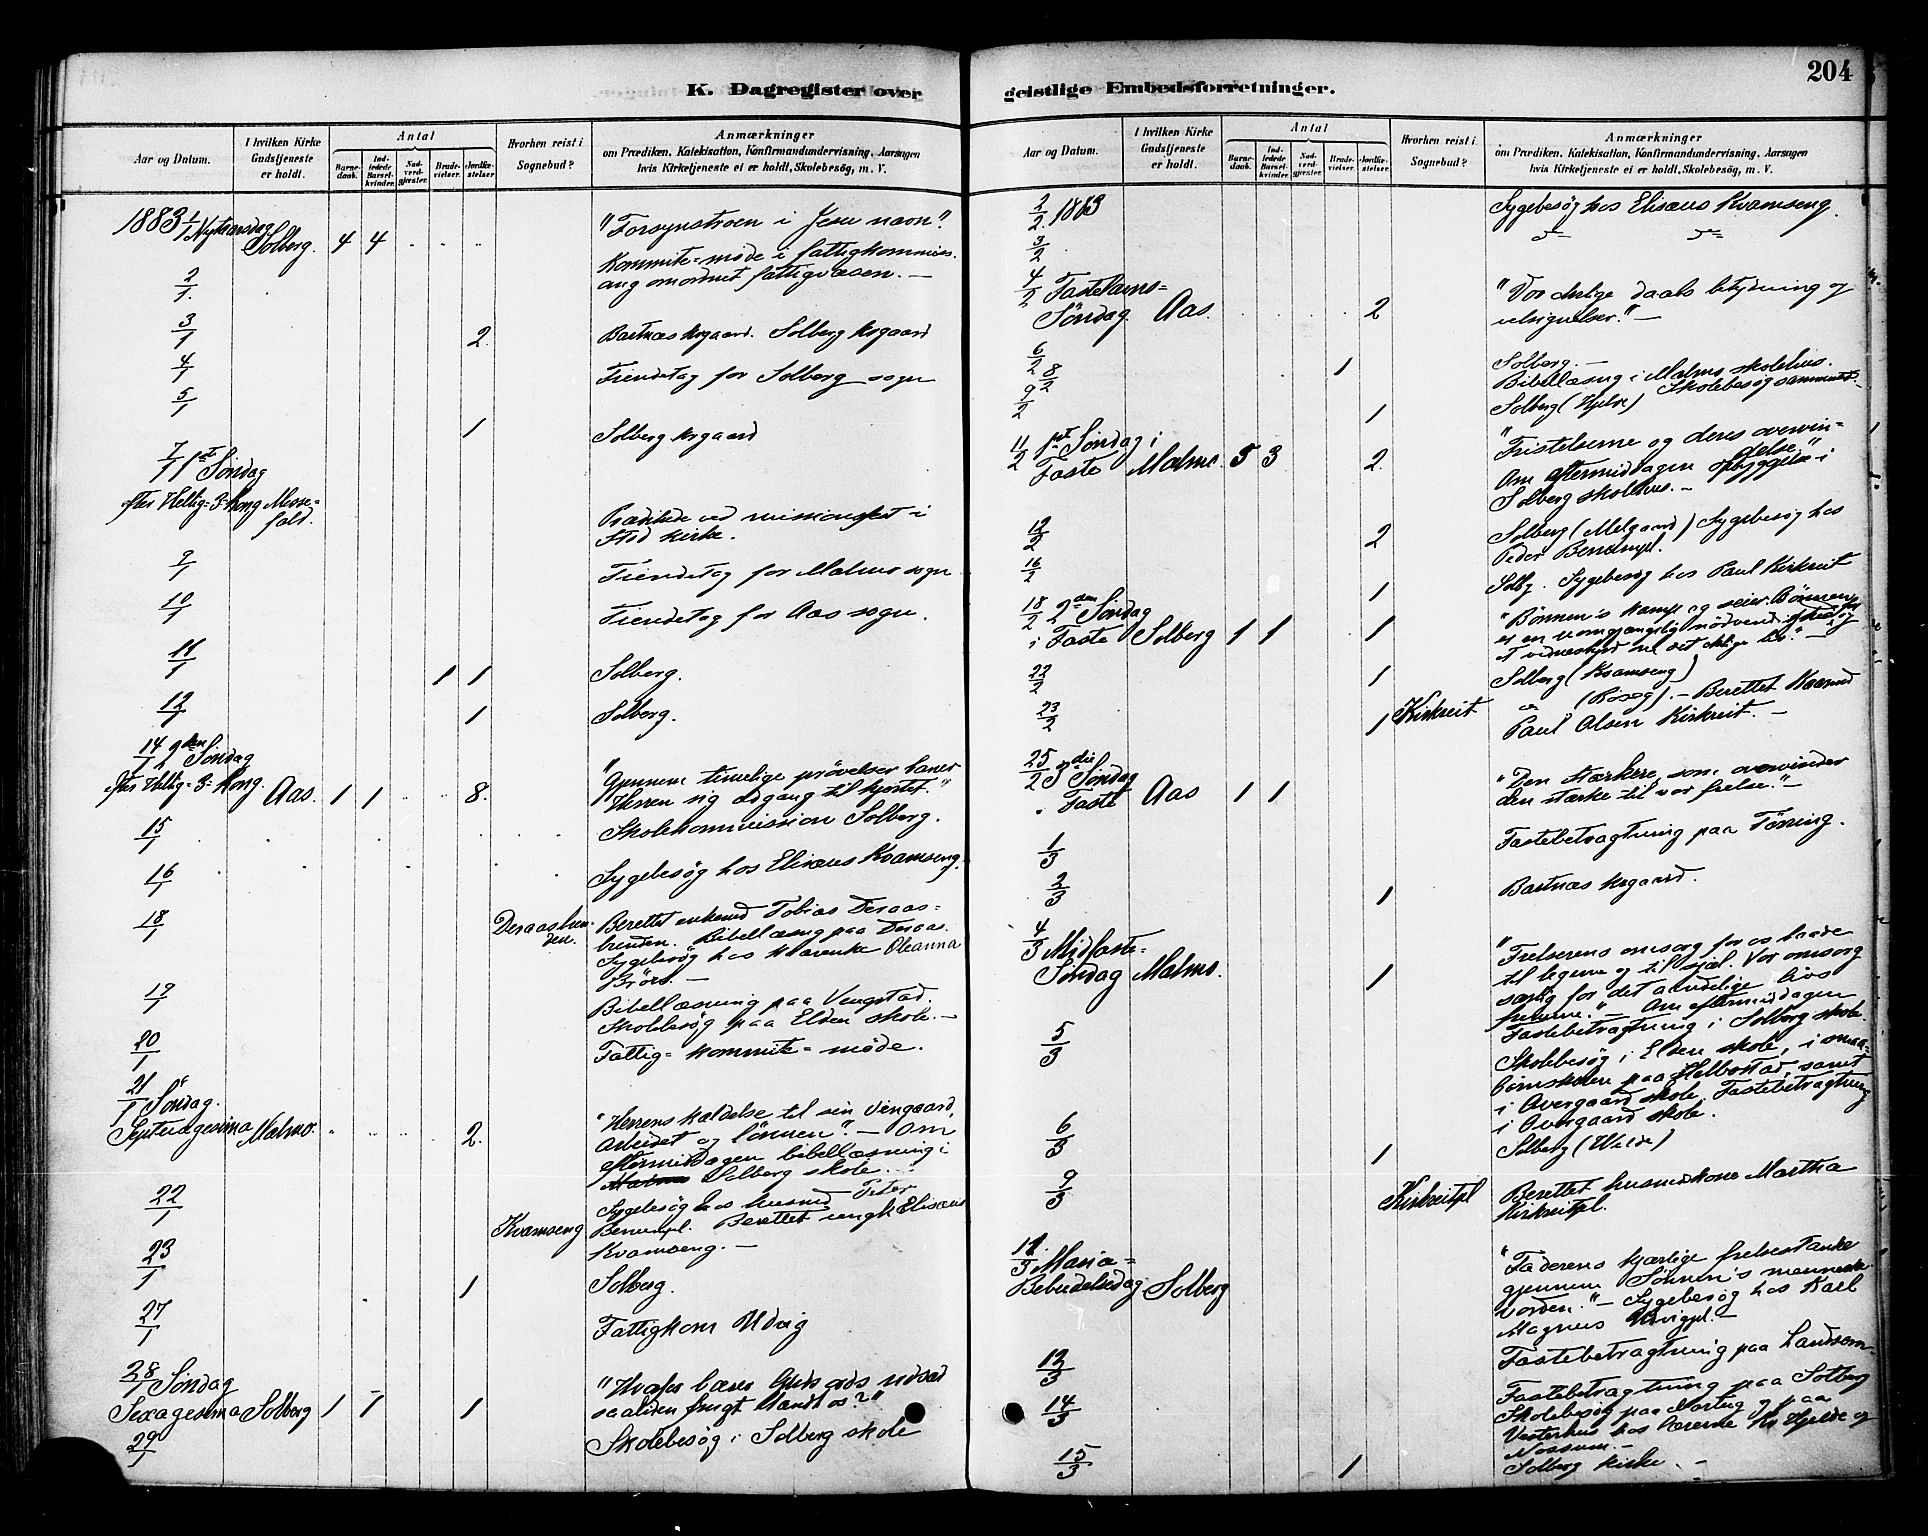 K. Dagregister over
Aar og Datum.
I hvilken Kirke Gudstjeneste er holdt.
Antal
Barnedaab.
Indledede Barselkvinder.
Nadverdgjester.
Brudevielser.
Jordfæstelser
Hvorhen reist i Sognebud?
Anmærkninger
om Prædiken, Katekisation, Konfirmandundervisning, Aarsagen
hvis Kirketjeneste ei er holdt, Skolebesøg, m. V.
1883 1/1 Nytaarsdag Solberg. 4 4 "Forsynstroen i Jesu navn".
Kommite-møde i fattigkommiss.
2/1. ang omordnet fattigvæsen. —
3/1 2. Bartnæs krgaard. Solberg krgaard
4/1 Tiendetag for Solberg sogn
5/1
1 Solberg krgaard
7/1 1st Søndag
efter Hellig-3-Kong. Messefald.
Prædikede ved missionsfest i
Stod kirke.
9/1 Tiendetag for Malmo sogn
10/1 Tiendetag for Aas sogn.
11/1 1 1 Solberg.
12/1 1 Solberg.
14/1 2den Søndag
efter Hellig-3-Kong. Aas. 1 1 8. "Gjennem timelige prøvelser baner
Herren sig adgang til hjertet."
15/1 Skolekommission Solberg.
16/1 Sygebesøg hos Elisæus Kvamseng.
18/1 Deraasbrenden. Berettet enkemd Tobias Deraas-
brenden. Bibellæsng paa Deraas.
Sygebesøg hos Oleanna
19/1 Bibellæsning paa Vengstad.
Skolebesøg paa Elden skole. —
20/1 Fattig-kommite-møde.
21/1 Søndag
Septuagesima Malmo. 2. "Herrens kaldelse til sin vingaard,
arbeidet og lønnen". — Om
eftermiddagen bibellæsning i
Solberg skole.
22/1 Sygebesøg hos husmd Peter
Kvamseng Berettet ungk Elisæus
Kvamseng. —
23/1 1 Solberg.
27/1 Fattigkom Utvig
28/1 Søndag
Sexagesima Solberg 1 1 1 "Hvorfor bærer Guds ords udsæd
saaliden frugt blandt os?"
29/1 Skolebesøg i Solberg skole
geistlige Embedsforretninger.
204
Aar og Datum.
I hvilken Kirke Gudstjeneste er holdt.
Antal
Barnedaab.
Indledede Barselkvinder.
Nadverdgjester.
Brudevielser.
Jordfæstelser
Hvorhen reist i Sognebud?
Anmærkninger
om Prædiken, Katekisation, Konfirmandundervisning, Aarsagen
hvis Kirketjeneste ei er holdt, Skolebesøg, m. V.
2/2. 1883 Sygebesøg hos Elisæus Kvamseng.
3/2
4/2 Fastelavns-
Søndag. Aas. 2 "Vor daabs betydning og
velsignelser." —
6/2 1 Solberg. —
8/2 Bibellæsng i Malmo skolehus.
Skolebesøg sammesteds.
9/2 1 Solberg (Hjelde)
11/2 1st Søndag i
Faste Malmo. 5 3 2. "Fristelserne og deres overvin-
delse".
Om eftermiddagen opbyggelse i
Solberg skolehus. —
12/2 2 Solberg (Melgaard) Sygebesøg hos
Peder
16/2 1 Solbg. Sygebesøg hos Paul Kirkreit
18/2 2den Søndag
i Faste Solberg 1 1 1 "Bønnen's kamp og seier. Bønnen
er en uomgjængelig nødvendighed for
et vidnesbyrd om det
22/2 1 Solberg (Kvamseng)
23/2 1 Kirkreit Berettet Kaarmd
Paul Olsen Kirkreit. —
25/2 3die Søndag
i Faste Aas 1 1 "Den stærkere, som overvinder
den stærke til vor frelse." —
1/3 Fastebetragtning paa Tørring.
2/3 1 Bartnæs krgaard.
4/3 Midfaste-
Søndag Malmo. 1 "Frelserens omsorg for os baade
til legeme og til sjæl. Vor omsorg
særlig for det aandelige livs
fremme." — Om eftermiddagen
Fastebetragtning i Solberg skole.
5/3 Skolebesøg i Elden skole, i smaa-
børnskolen paa Helbostad, samt
i Overgaard skole. Fastebetragtning
i Overgaard skole.
6/3 1 Solberg
9/3 Kirkreitpl Berettet husmdskone Martha
Kirkreitpl.
11/3 Maria-
Bebudelsedag Solberg "Faderens kjærlige frelsestanke
gjennem Sønnen's menneske
vorden." — Sygebesøg hos Karl
Magnus Utvigpl. —
12/3 Fastebetragtning paa Landsem
14/3 Fastebetragtning paa Solberg
Skolebesøg paa og paa
Vesterhus hos lærerne Hjelde og
Nossum. —
15/3 1 Solberg kirke. —